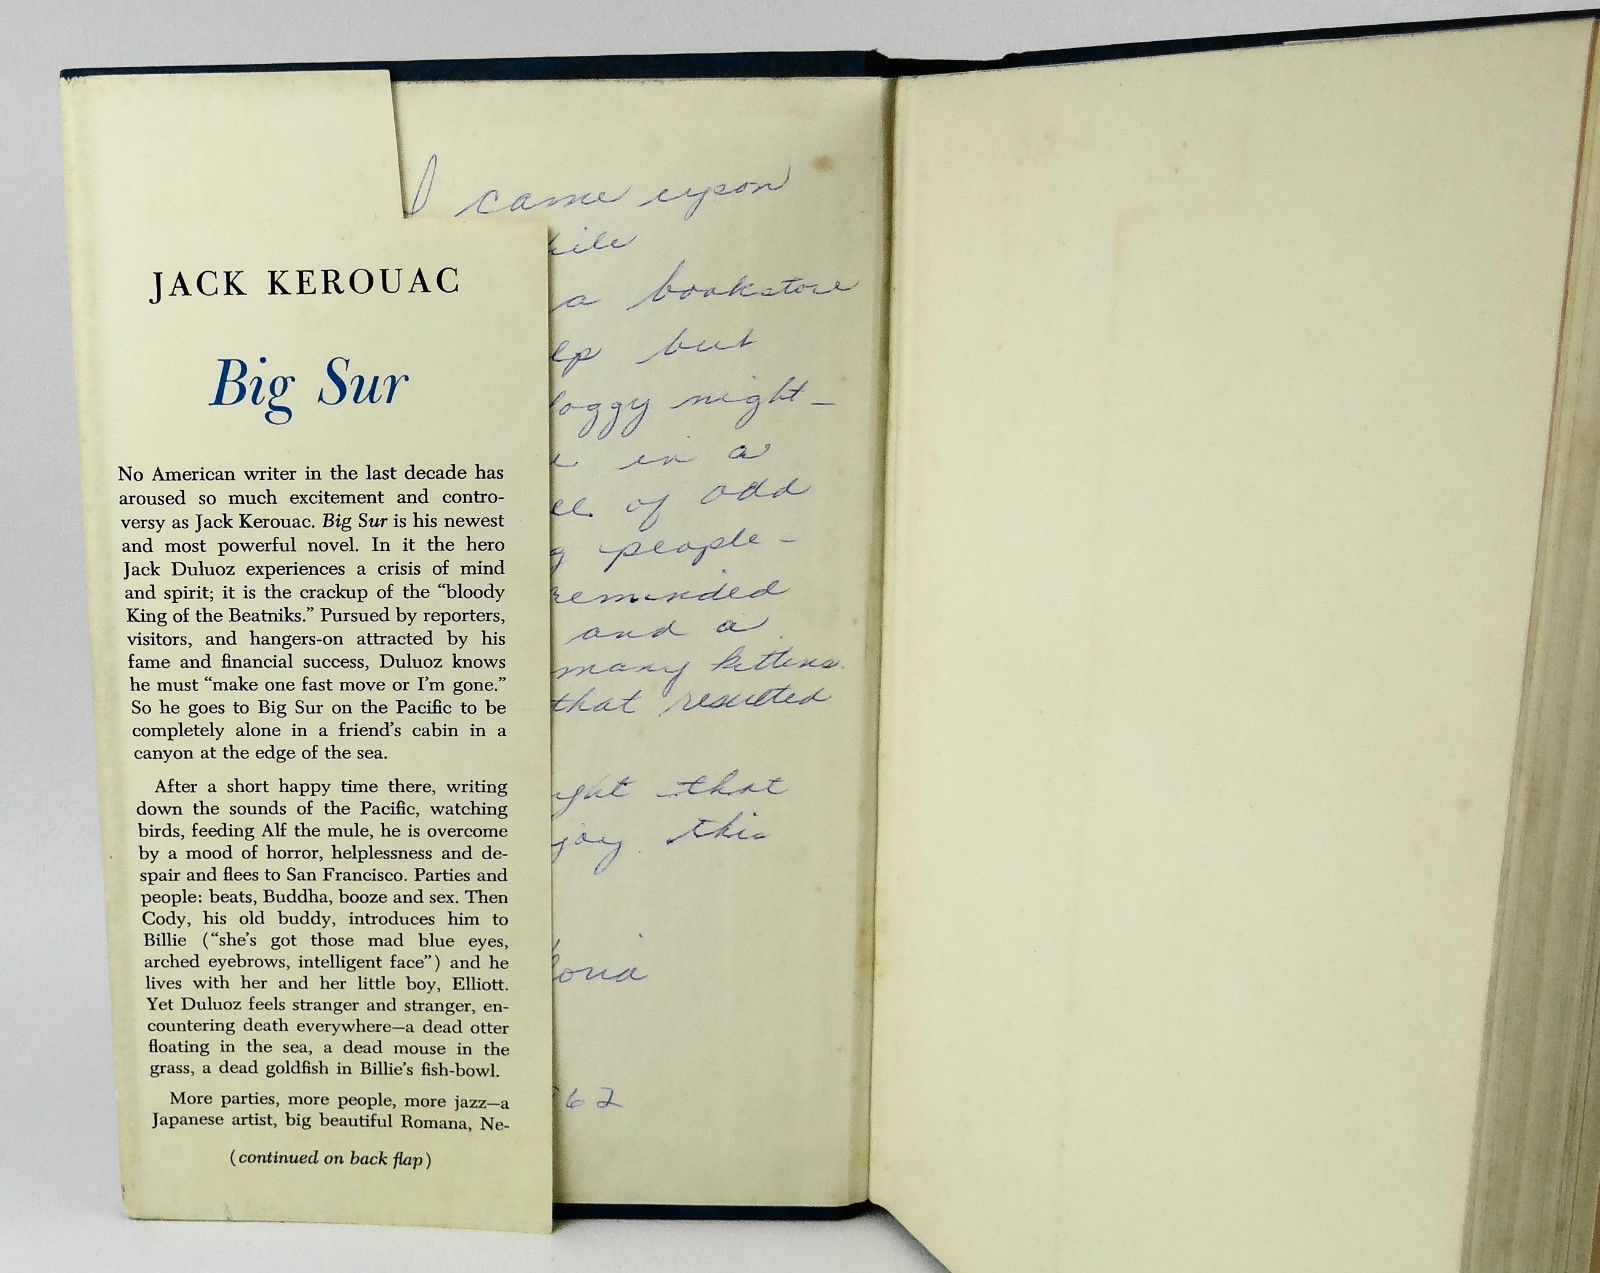 JACK KEROUAC
Big Sur
No American writer in the last decade has
aroused so much excitement and contro-
versy as Jack Kerouac. Big Sur is his newest
and most powerful novel. In it the hero
Jack Duluoz experiences a crisis of mind
and spirit; it is the crackup of the “bloody
King of the Beatniks.” Pursued by reporters,
visitors, and hangers-on attracted by his
fame and financial success, Duluoz knows
he must “make one fast move or I’m gone.”
So he goes to Big Sur on the Pacific to be
completely alone in a friend’s cabin in a
canyon at the edge of the sea.
After a short happy time there, writing
down the sounds of the Pacific, watching
birds, feeding Alf the mule, he is overcome
by a mood of horror, helplessness and de-
spair and flees to San Francisco. Parties and
people: beats, Buddha, booze and sex. Then
Cody, his old buddy, introduces him to
Billie (“she’s got those mad blue eyes,
arched eyebrows, intelligent face”) and he
lives with her and her little boy, Elliott.
Yet Duluoz feels stranger and stranger, en-
countering death everywhere—a dead otter
floating in the sea, a dead mouse in the
grass, a dead goldfish in Billie’s fish-bowl.
More parties, more people, more jazz—a
Japanese artist, big beautiful Romana, Ne-
(continued on back flap)
I came upon
a bookstore
but
foggy night—
in a
of odd
people—
reminded
and a
many kittens.
that resulted
that
this
62